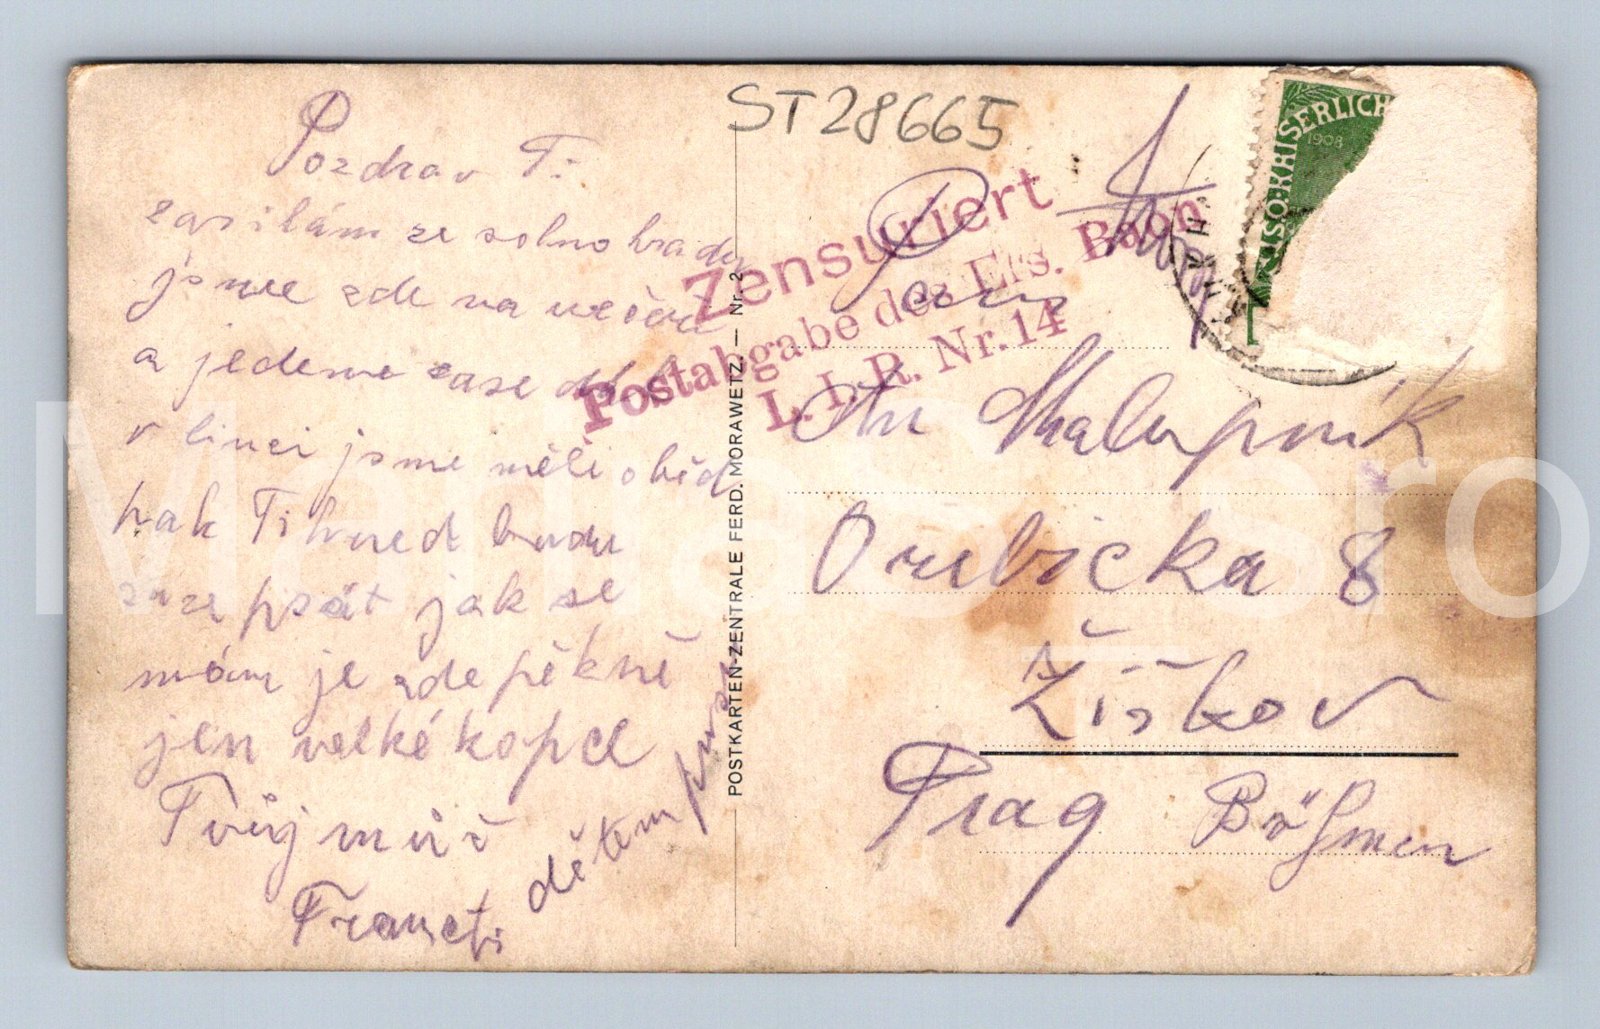 ST28665
Pozdrav Ti
zasílám ze solnohradu
jsme zde na večeři
a jedeme zase dál
v linci jsme měli oběd
pak Ti hned budu
zase psát jak se
mám je zde pěkně
jen velké kopce
Tvůj muž
Franc
dětem pusu
POSTKARTEN-ZENTRALE FERD. MORAWETZ. — Nr. 2
Zensuriert
Postabgabe des Ers. Baon
L. I. R. Nr. 14
KAIS. KÖ
1908
An Chalupník
Orebicka 8
Žižkov
Prag Böhmen
Marias sro